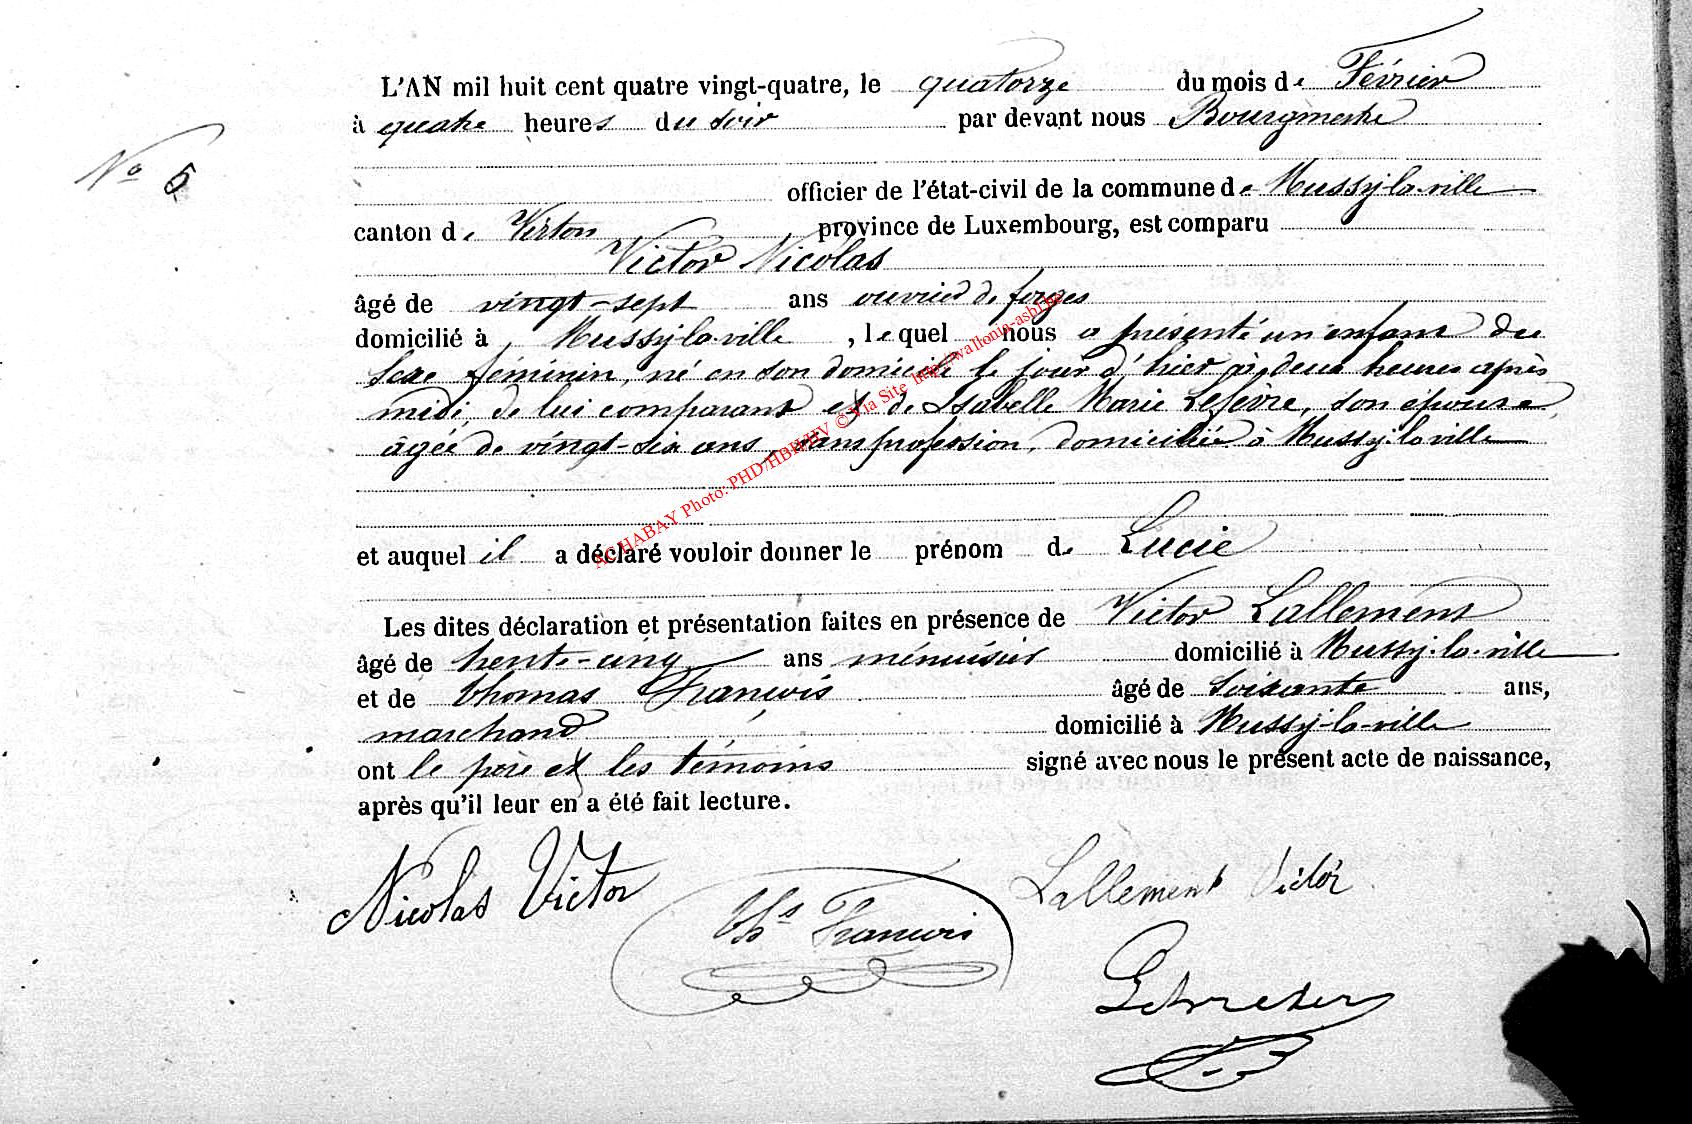 L'AN mil huit cent quatre vingt-quatre, le quatorze du mois de Février
à quatre heures du soir par devant nous Bourgmestre
N° 5
officier de l'état-civil de la commune de Mussy-la-ville
canton de Virton province de Luxembourg, est comparu
Victor Nicolas
âgé de vingt-sept ans ouvrier de forges
domicilié à Mussy-la-ville, lequel nous a présenté un enfant du
sexe féminin, né en son domicile le jour d'hier à deux heures après
midi, de lui comparant et de Isabelle Marie Lefèvre, son épouse,
âgée de vingt-six ans, sans profession, domiciliée à Mussy-la-ville
et auquel il a déclaré vouloir donner le prénom de Lucie
Les dites déclaration et présentation faites en présence de Victor Lallement
âgé de trente-cinq ans menuisier domicilié à Mussy-la-ville
et de Thomas François âgé de soixante ans,
marchand domicilié à Mussy-la-ville
ont le père et les témoins signé avec nous le présent acte de naissance,
après qu'il leur en a été fait lecture.
Nicolas Victor Ths François Lallement Victor
AC HABAY Photo: PHD/HBH/HV © Via Site http://wallonia-asbl.be